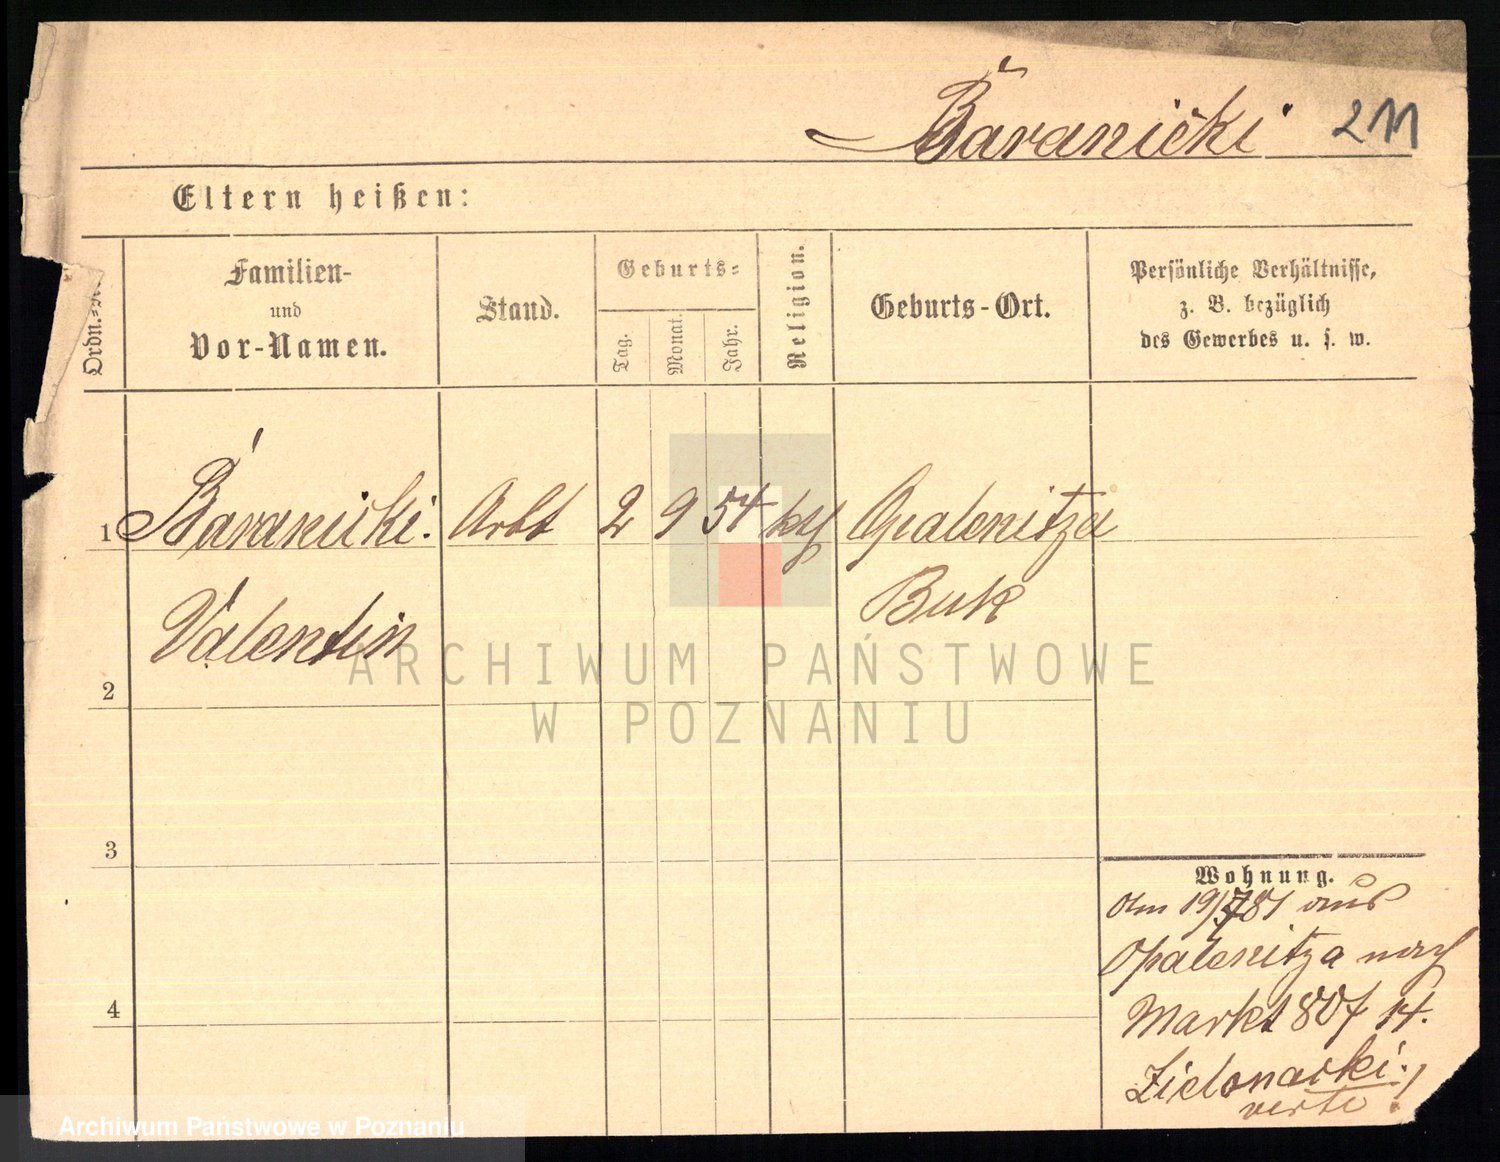 Baranicki 211
Eltern heißen:
Ordn.-
Familien-
und
Vor-Namen.
Stand.
Geburts-
Tag.
Monat.
Jahr.
Religion.
Geburts-Ort.
Persönliche Verhältnisse,
z. B. bezüglich
des Gewerbes u. s. w.
1 Baranicki. Arbt 2 9 54 kth Opalenitza
Valentin Buk
2
3
4
Wohnung.
Am 19/781 aus
Opalenitza nach
Markt 80
verte!
ARCHIWUM PAŃSTWOWE
W POZNANIU
Archiwum Państwowe w Poznaniu